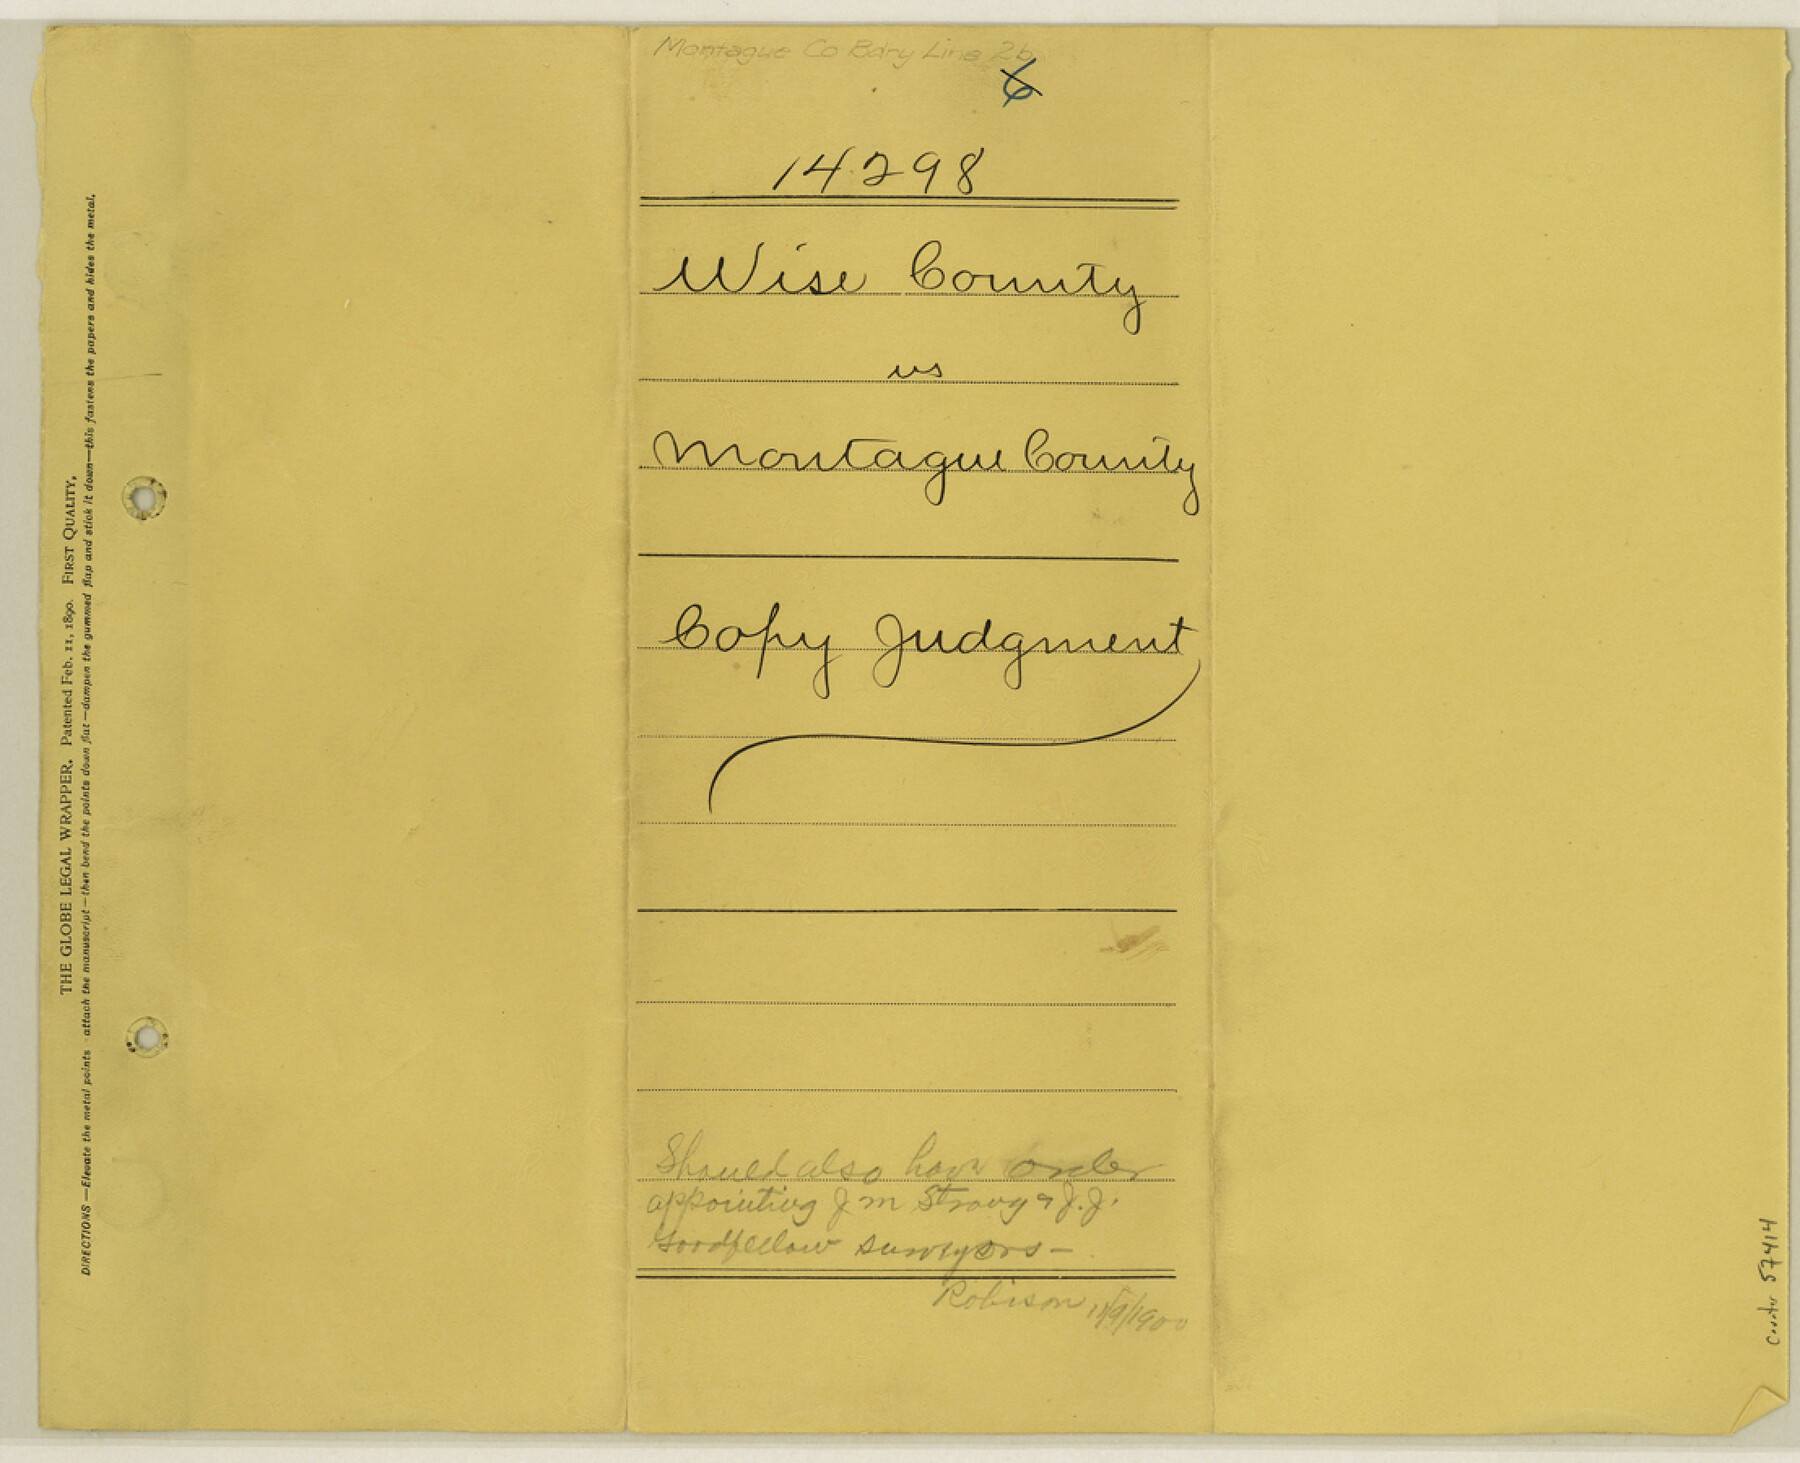 THE GLOBE LEGAL WRAPPER. Patented Feb. 11, 1890. FIRST QUALITY.
DIRECTIONS—Elevate the metal points - attach the manuscript—then bend the points down flat—dampen the gummed flap and stick it down—this fastens the papers and hides the metal.
Montague Co Bdry Line 2b
6
14298
Wise County
vs
Montague County
Copy Judgment
Should also have order
appointing J M Strong & J. J.
Goodfellow surveyors—
Robison 11/9/1900
Counter 57414